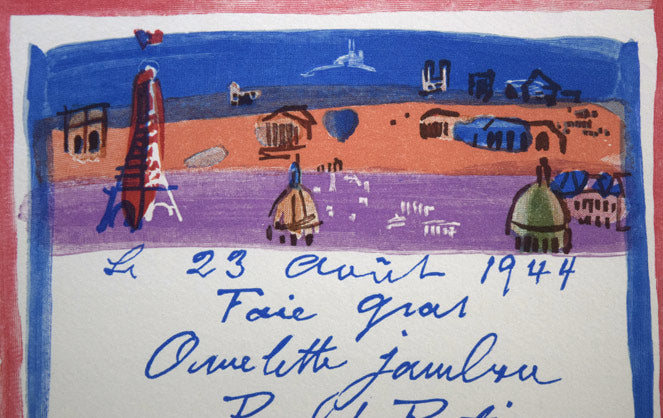 Le 23 Août 1944
Foie gras
Omelette jambon